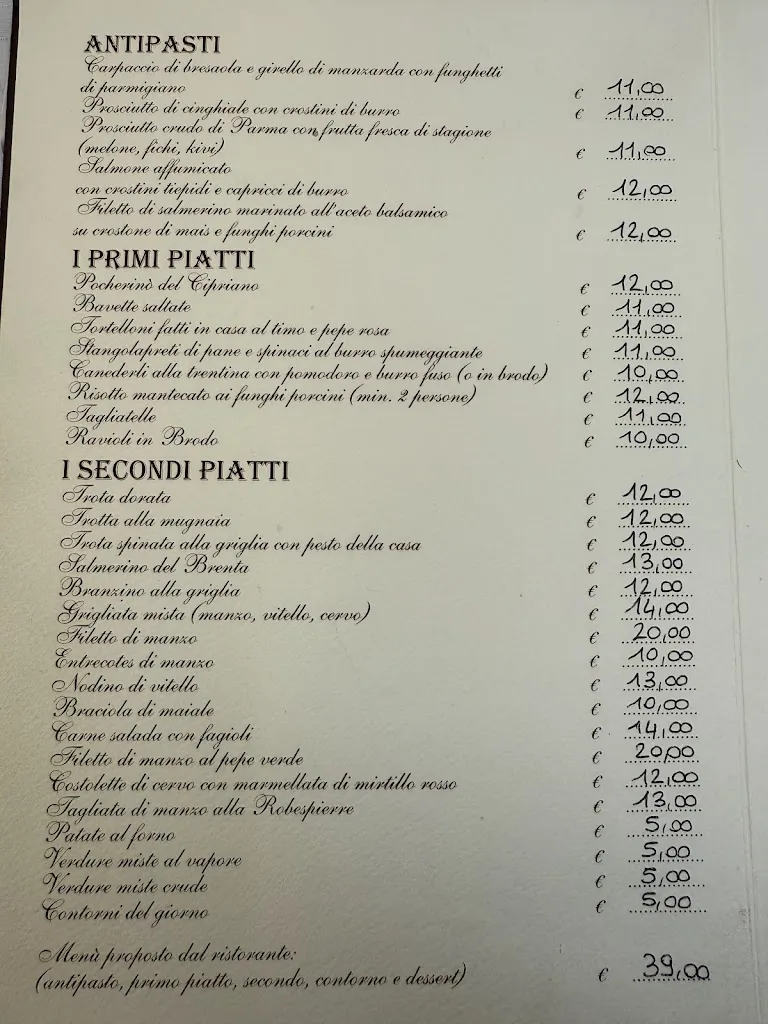 ANTIPASTI
Carpaccio di bresaola e girello di manzarda con funghetti
di parmigiano € 11,00
Prosciutto di cinghiale con crostini di burro € 11,00
Prosciutto crudo di Parma con frutta fresca di stagione
(melone, fichi, kivi) € 11,00
Salmone affumicato
con crostini tiepidi e capricci di burro € 12,00
Filetto di salmerino marinato all'aceto balsamico
su crostone di mais e funghi porcini € 12,00
I PRIMI PIATTI
Pocherinò del Cipriano € 12,00
Bavette saltate € 11,00
Tortelloni fatti in casa al timo e pepe rosa € 11,00
Stangolapreti di pane e spinaci al burro spumeggiante € 11,00
Canederli alla trentina con pomodoro e burro fuso (o in brodo) € 10,00
Risotto mantecato ai funghi porcini (min. 2 persone) € 12,00
Tagliatelle € 11,00
Ravioli in Brodo € 10,00
I SECONDI PIATTI
Trota dorata € 12,00
Trotta alla mugnaia € 12,00
Trota spinata alla griglia con pesto della casa € 12,00
Salmerino del Brenta € 13,00
Branzino alla griglia € 12,00
Grigliata mista (manzo, vitello, cervo) € 14,00
Filetto di manzo € 20,00
Entrecotes di manzo € 10,00
Nodino di vitello € 13,00
Braciola di maiale € 10,00
Carne salada con fagioli € 14,00
Filetto di manzo al pepe verde € 20,00
Costolette di cervo con marmellata di mirtillo rosso € 12,00
Tagliata di manzo alla Robespierre € 13,00
Patate al forno € 5,00
Verdure miste al vapore € 5,00
Verdure miste crude € 5,00
Contorni del giorno € 5,00
Menù proposto dal ristorante:
(antipasto, primo piatto, secondo, contorno e dessert) € 39,00